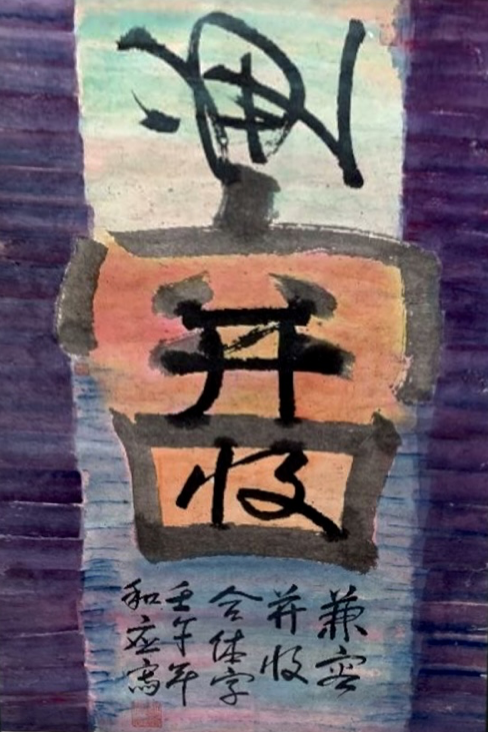 并
收
兼容
并收
合体字
壬午年
和应写